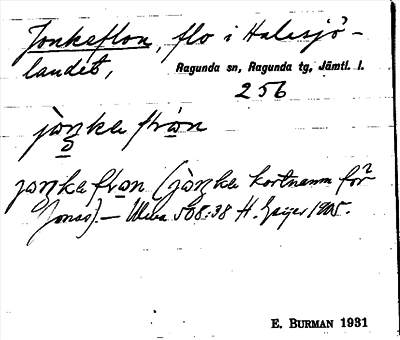 Jonkaflon, flo i Halasjö-
landet,
Ragunda sn, Ragunda tg, Jämtl. l.
256
jòŋka flon
joŋkaflon (jòŋka kortnamn för
Jonas). — Ulma 508:38 H. Geijer 1905.
E. BURMAN 1931